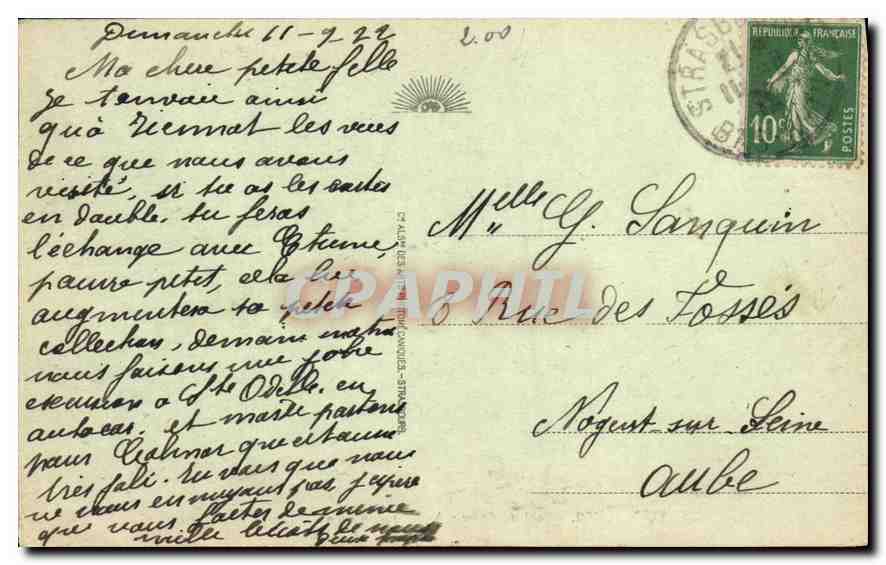 Dimanche 11-9 22
2.00
Ma chere petite fille
Je t'envoie ainsi
qu'à les vues
de ce que nous avons
visité, si tu as les cartes
en double. tu feras
l'échange avec Etienne,
pauvre petit, cela lui
augmentera sa petite
collection, demain matin
nous faisons une jolie
excursion a Ste Odille. en
autocar. et mardi partons
pour Colmar que est aussi
très joli. Tu vois que nous
ne nous ennuyons pas j'espere
que vous faites de même
mille baisers de nous
deux
STRASBOURG
REPUBLIQUE FRANÇAISE
10c
POSTES
Cie ALSne DES ARTS PHOTOMÉCANIQUES.-STRASBOURG
CPAPHIL
Melle G. Sanquin
6 Rue des Fossés
Nogent-sur-Seine
Aube